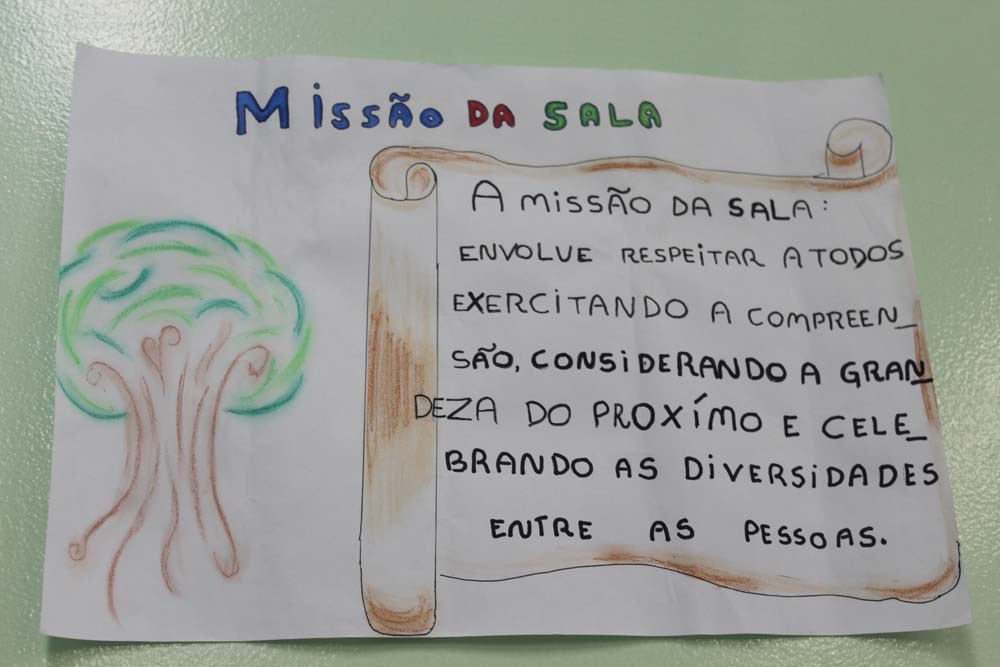 MISSÃO DA SALA
A MISSÃO DA SALA:
ENVOLVE RESPEITAR A TODOS
EXERCITANDO A COMPREEN_
SÃO, CONSIDERANDO A GRAN_
DEZA DO PROXÍMO E CELE_
BRANDO AS DIVERSIDADES
ENTRE AS PESSOAS.